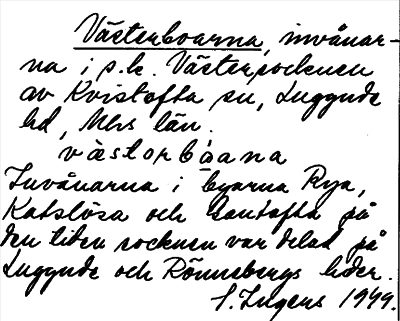 Västerboarna, invånar-
na i s.k. Västersocknen
av Kvistofta sn, Luggude
hd, Mhs län.
västorbåana
Invånarna i byarna Rya,
Katslösa och Gantofta på
den tiden socknen var delad på
Luggude och Rönnebergs häder.
S. Ingers 1949.